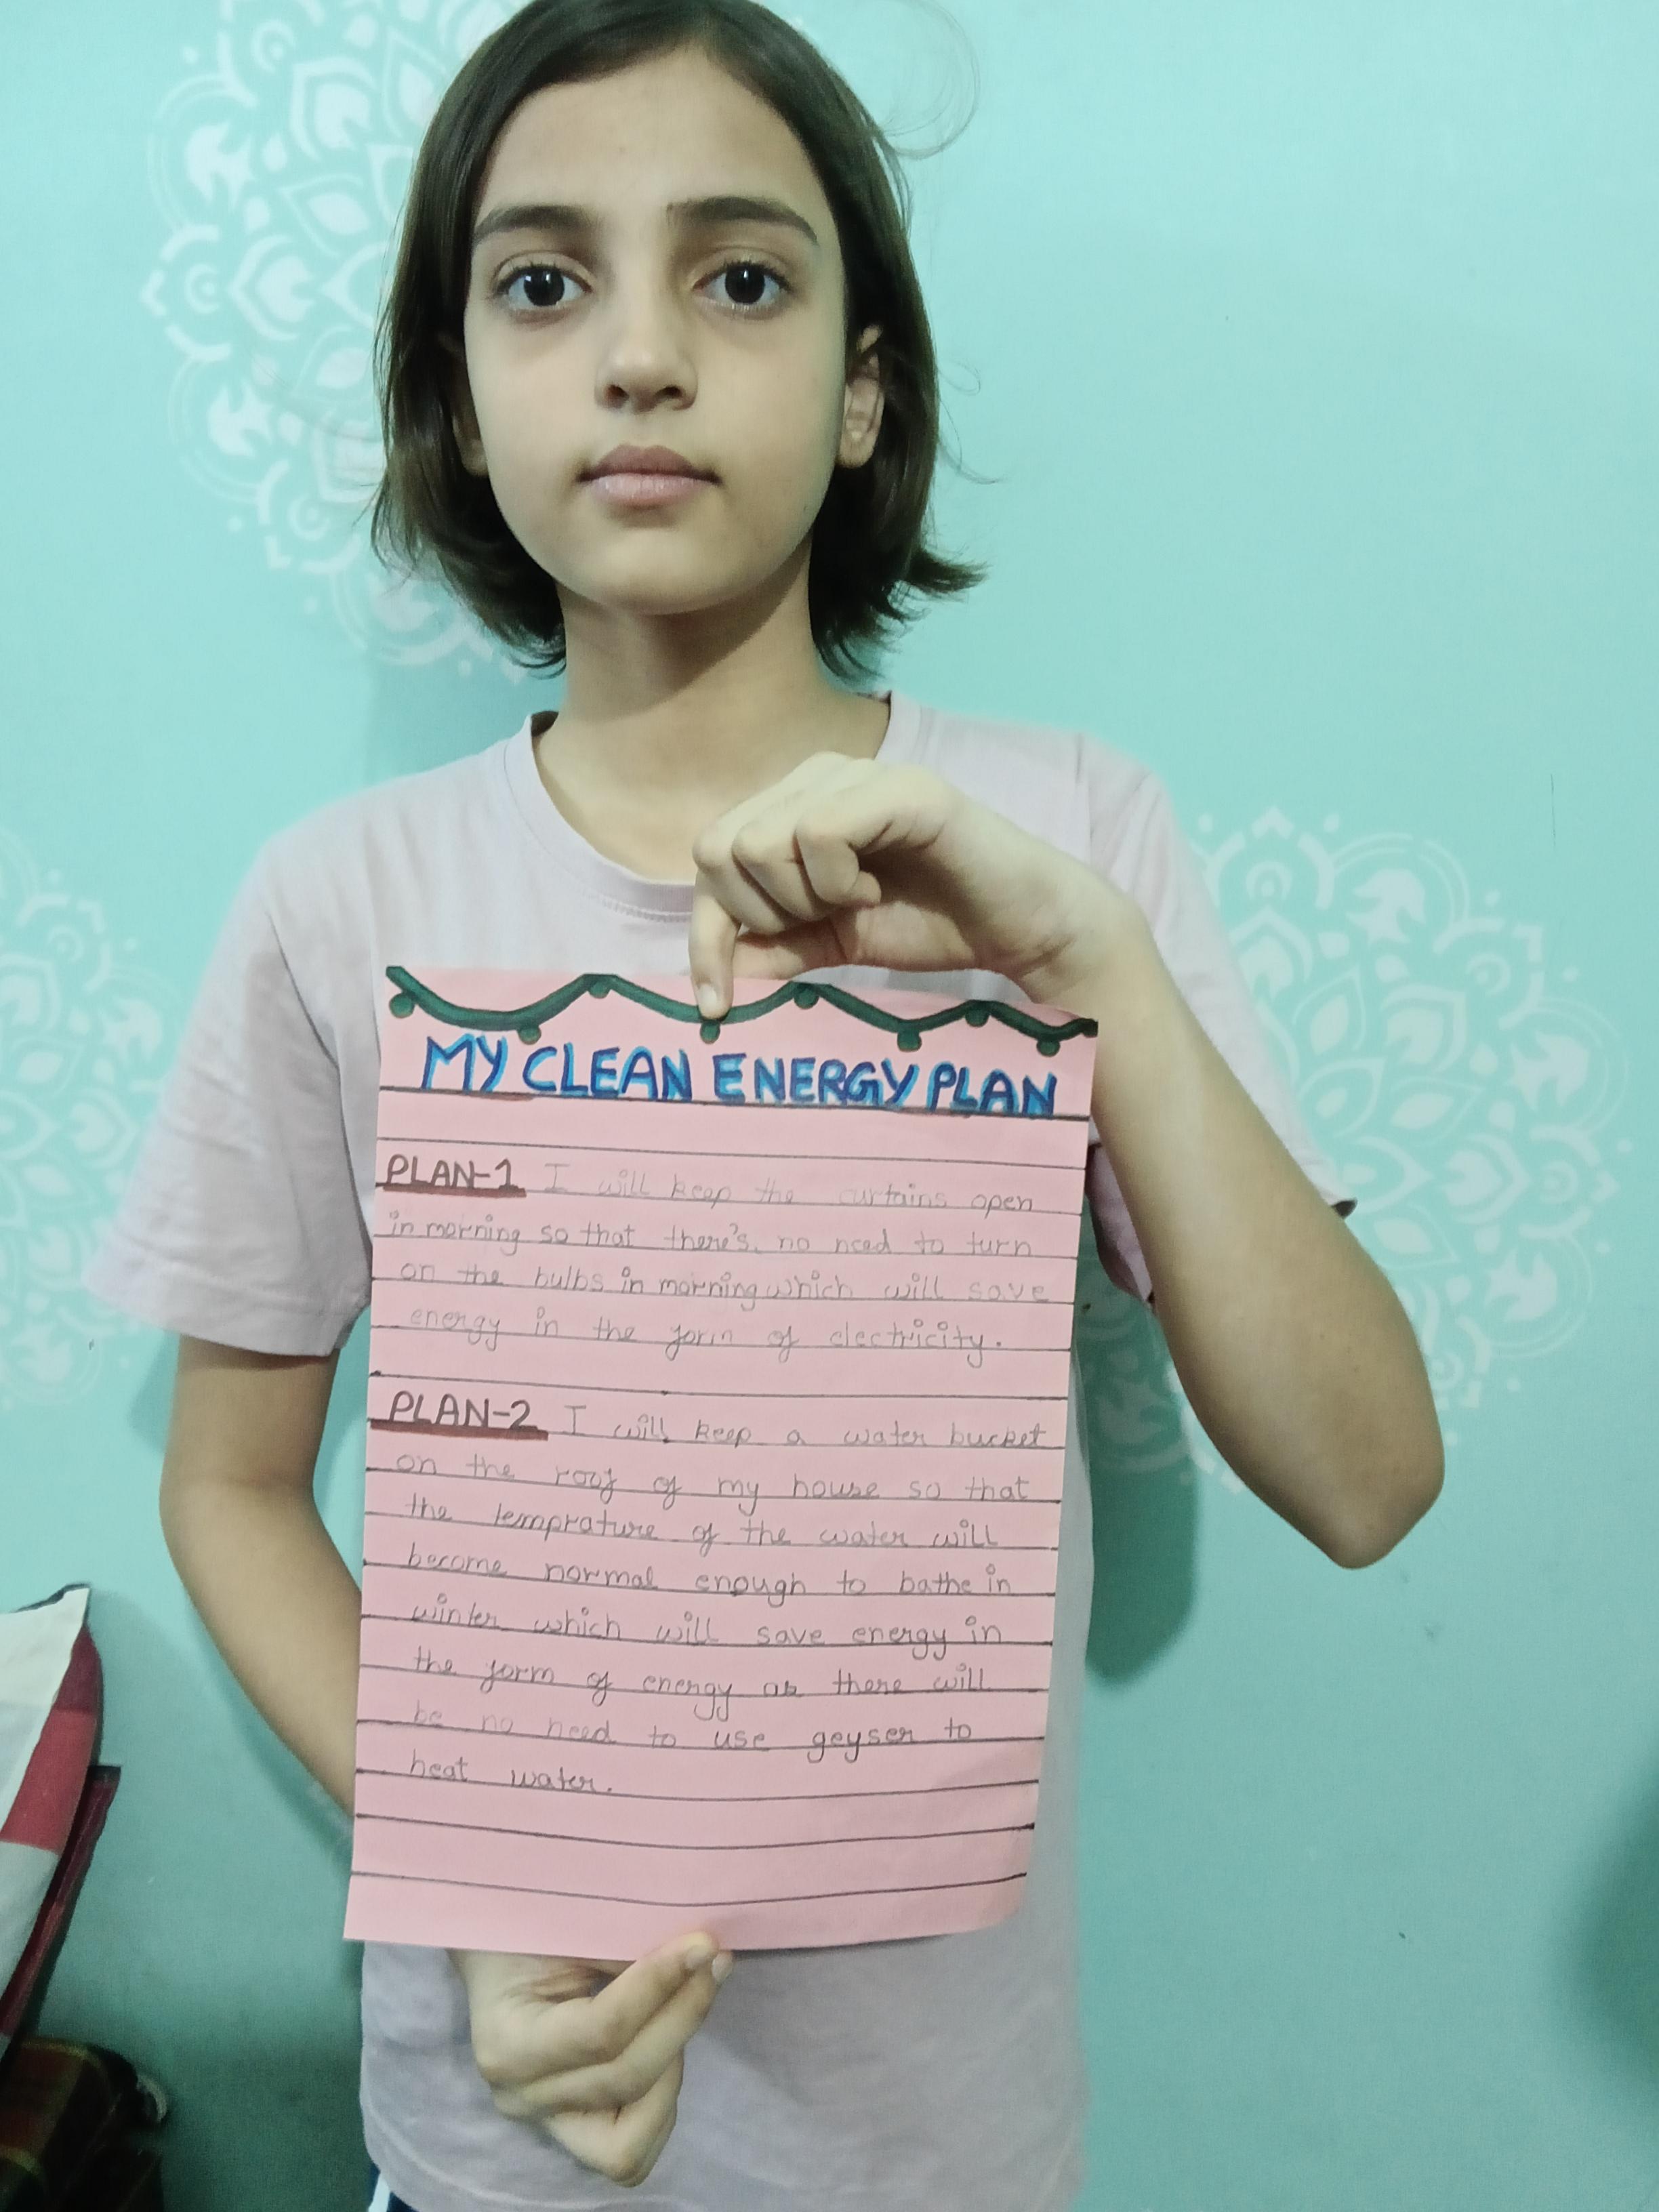 MY CLEAN ENERGY PLAN
PLAN-1 I will keep the curtains open
in morning so that there's no need to turn
on the bulbs in morning which will save
energy in the form of electricity.
PLAN-2 I will keep a water bucket
on the roof of my house so that
the temprature of the water will
become normal enough to bathe in
winter which will save energy in
the form of energy as there will
be no need to use geyser to
heat water.